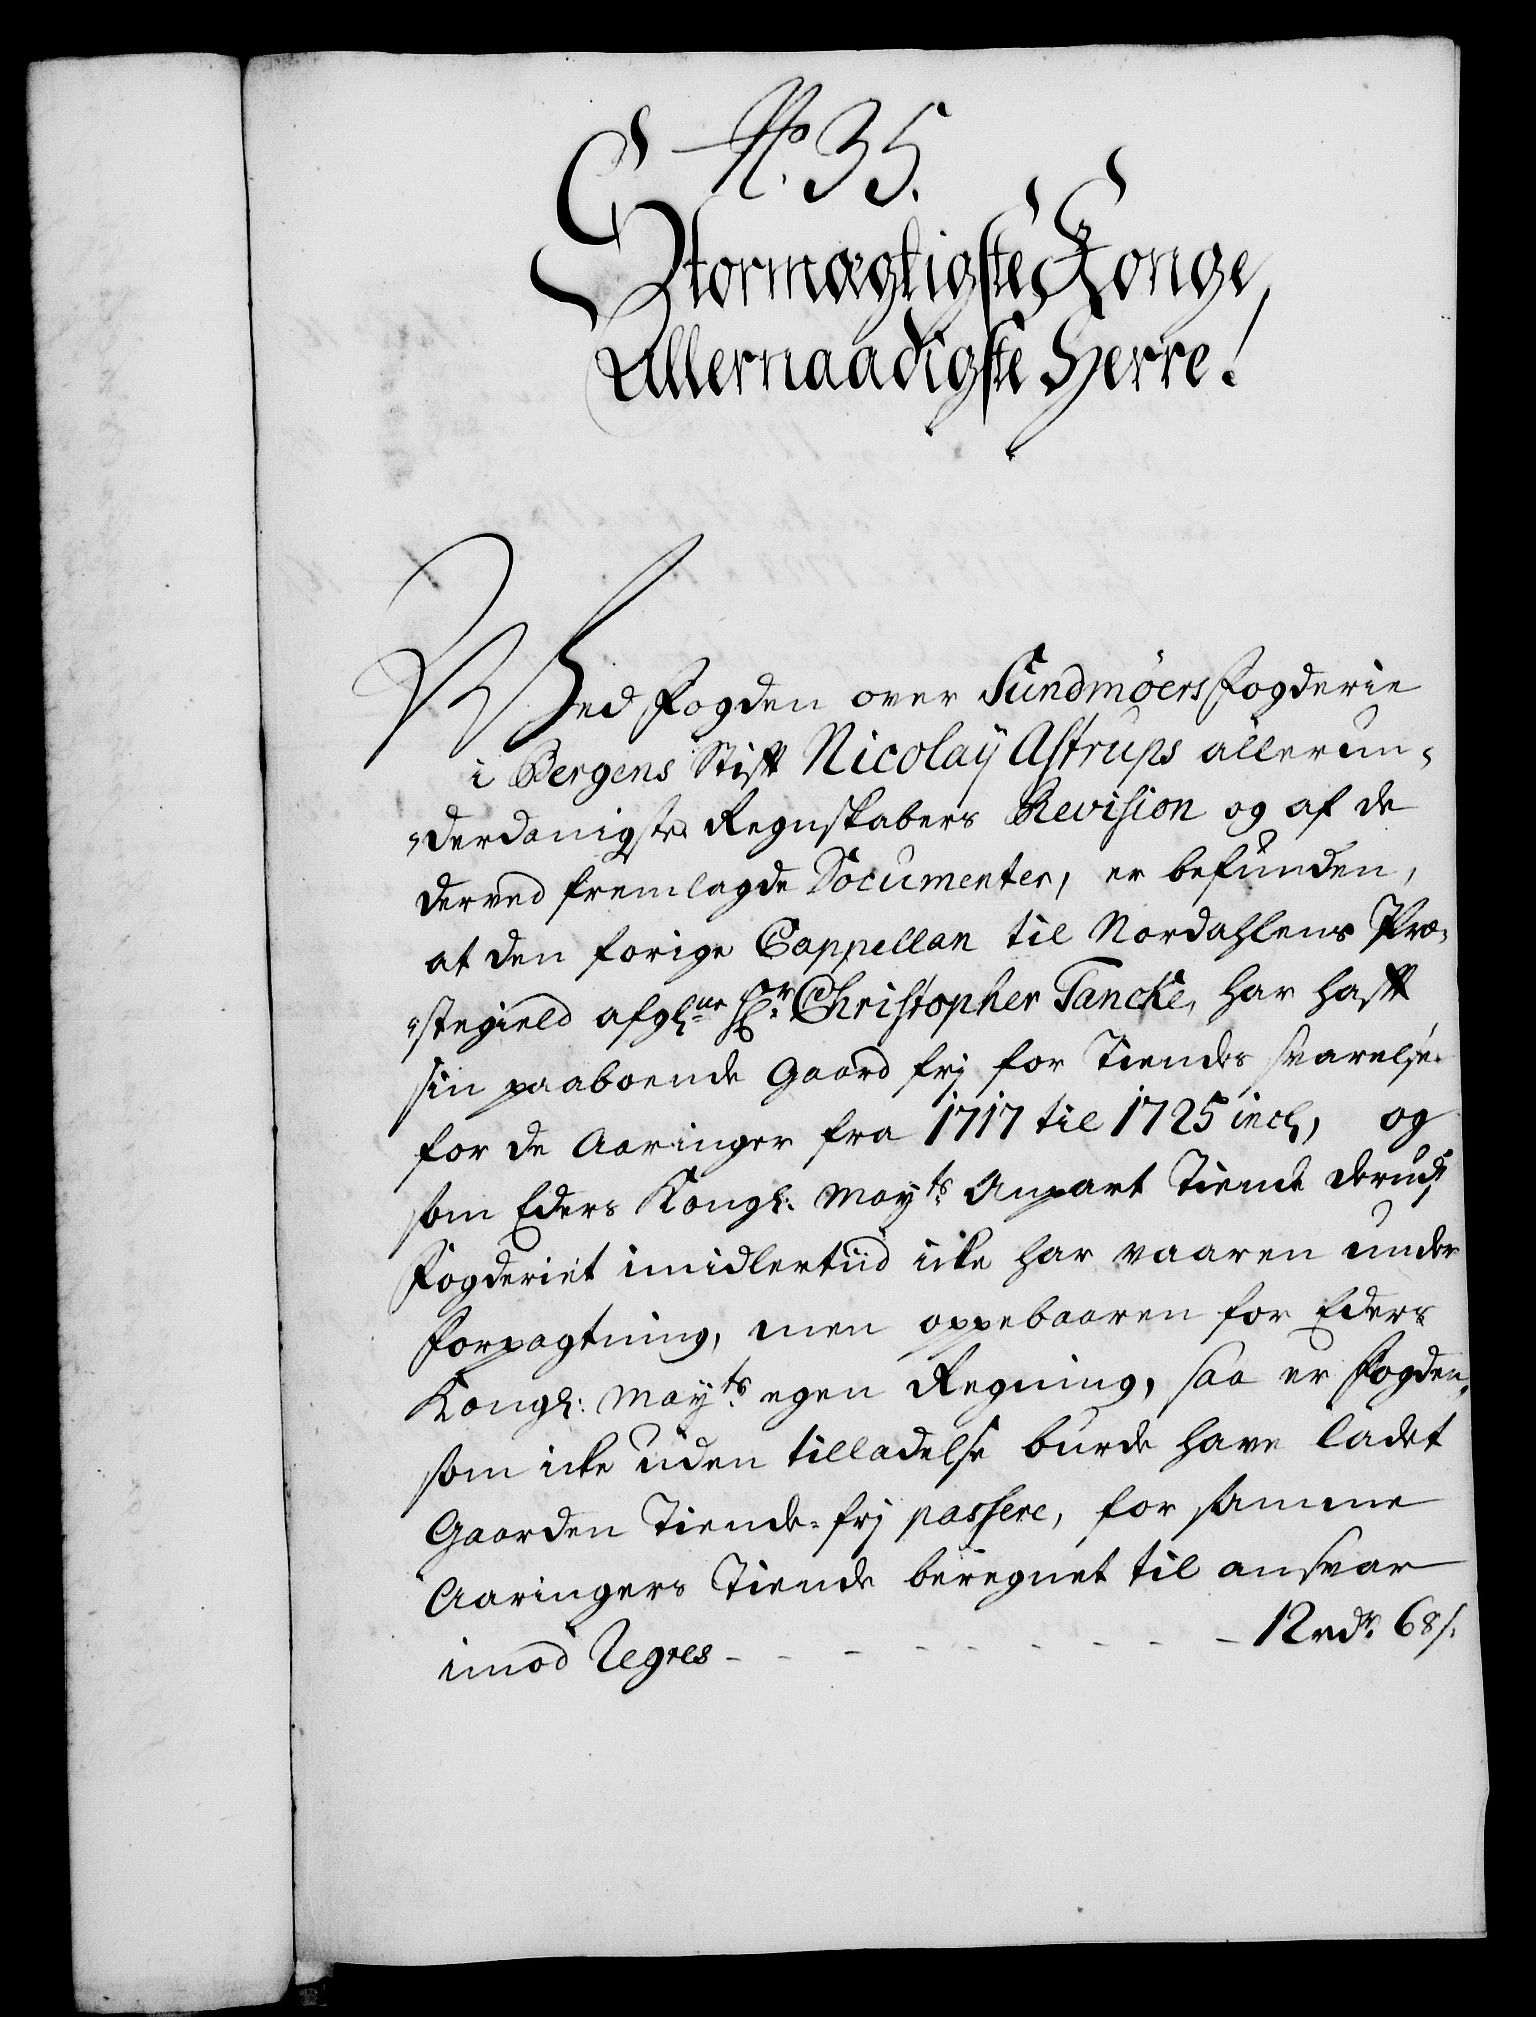 No. 35.
Stormægtigste Konge,
Allernaadigste Herre!
Wed Fogden over Sundmøers Fogderie
i Bergens Stift Nicolaÿ Astrups allerun-
-derdanigste Regnskabers Revision og af de
derved fremlagde Documenter, er befunden,
at den forige Cappellan til Nordahlens Præ-
-stegield afgl:ne Hr: Christopher Tancke, har hafft
sin paaboende Gaard frj for Tiendes svarelse
for de Aaringer fra 1717 til 1725 incl, og
som Eders Kongl: Mayts: Anpart Tiende derudj
Fogderiet imidlertiid icke har vaaren under
Forpagtning, men oppebaaren for Eders
Kongl: Mayts: egen Regning, saa er Fogden,
som icke uden tilladelse burde have ladet
Gaarden Tiende-frj passere, for samme
Aaringers Tiende beregnet til ansvar
imod Regres - - - - - - - - - 12 rdr. 68 s.